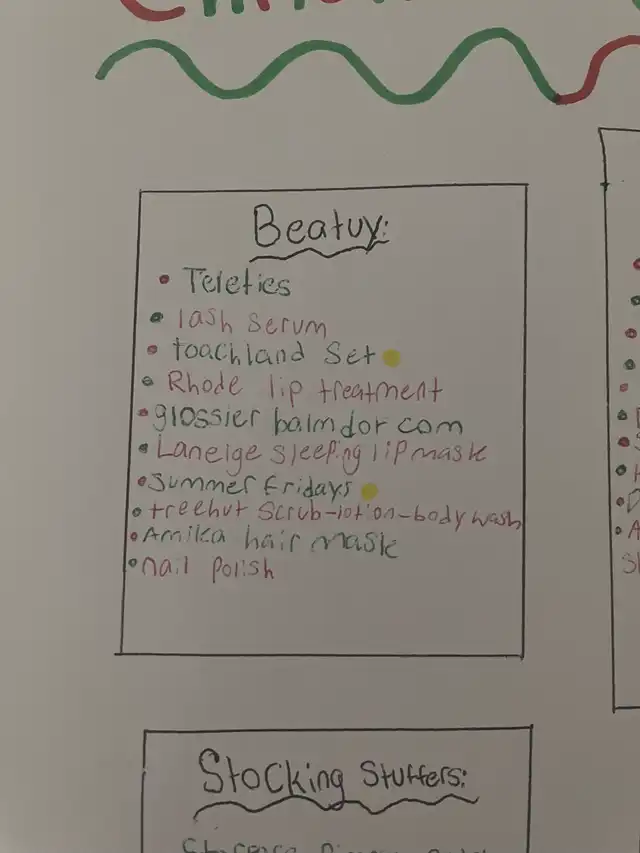 Beatuy:
• Teleties
• lash serum
• toachland Set
• Rhode lip treatment
• glossier balmdor com
• Laneige sleeping lip mask
• Summer Fridays
• treehut Scrub-lotion-body wash
• Amika hair mask
• nail polish
Stocking Stuffers: